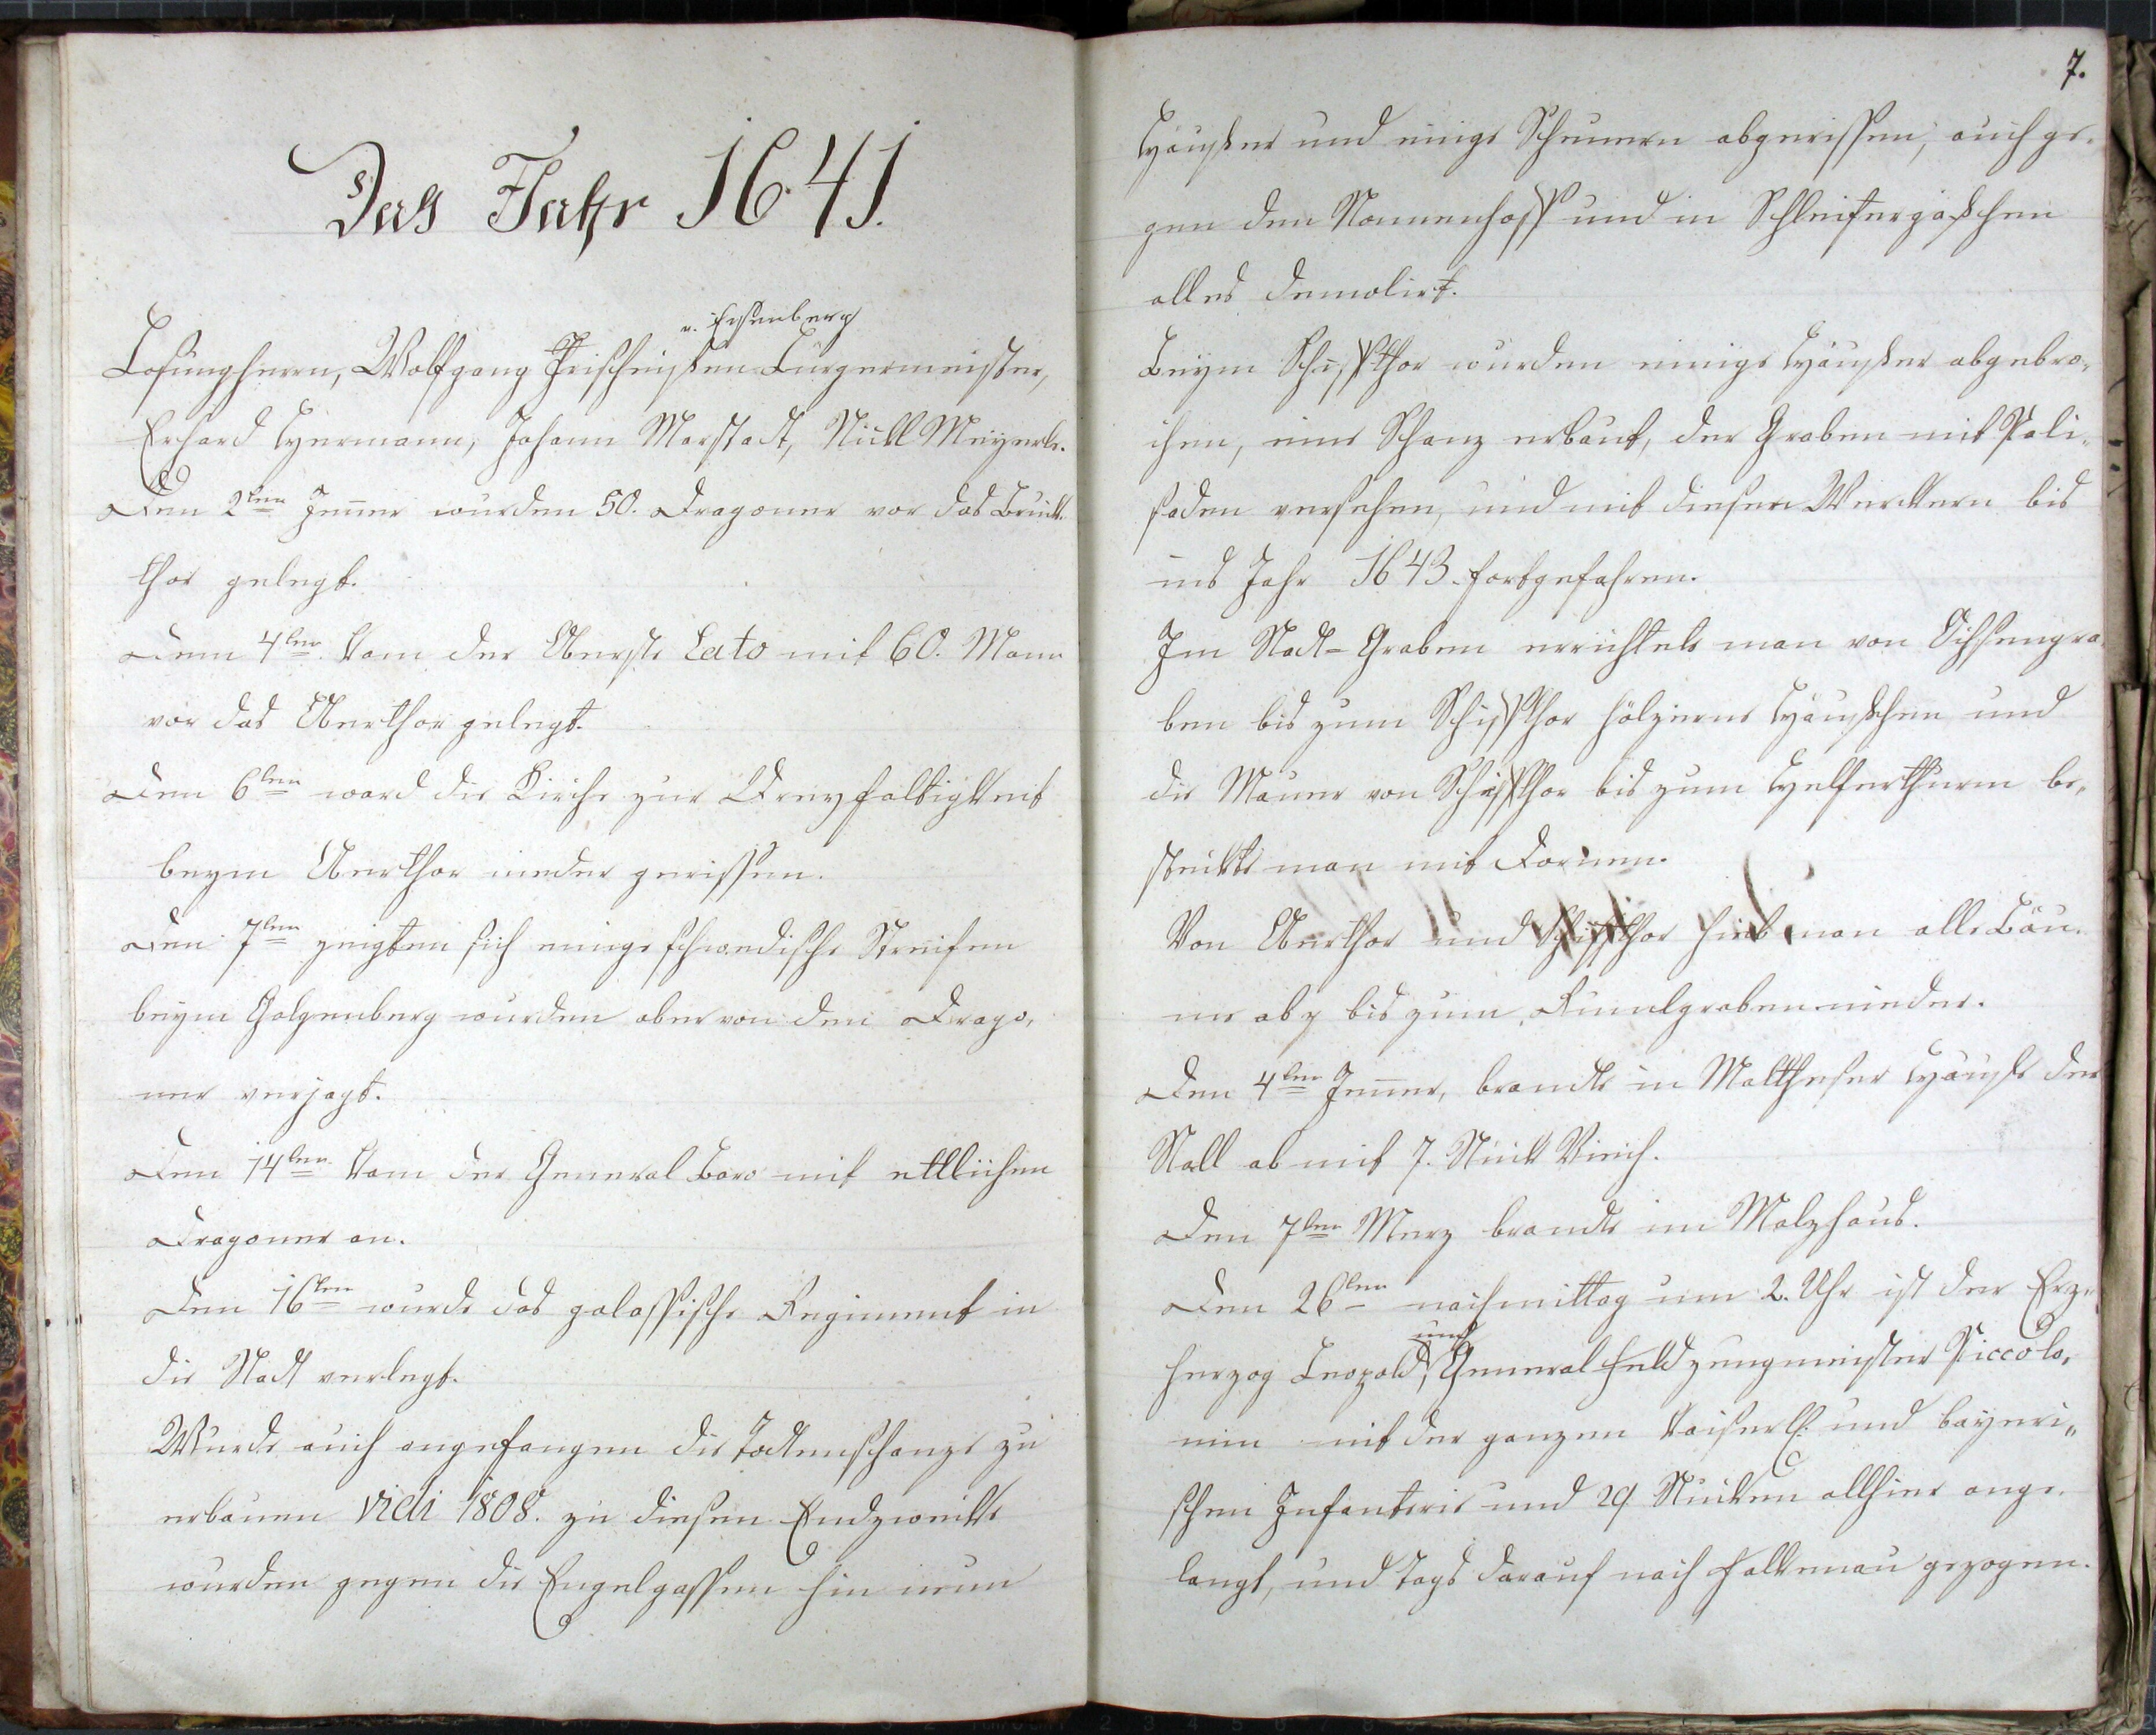 Das Jahr 1641.
v. Eisenberg
Losungherrn, Wolfgang Frischeisen Burgermeister,
Erhard Hermann, Johann Marstadt, Nickl Meyerle.
Den 2ten Jenner wurden 50. Dragoner vor das Bruck-
thor gelegt.
Den 4ten kam der Oberste Lato mit 60. Mann
vor das Oberthor gelegt.
Den 6ten ward die Kirche zur Dreyfaltigkeit
beym Oberthor nieder gerissen.
Den 7ten zeigten sich einige schwedische Streifen
beym Galgenberg wurden aber von den Drago,
ner verjagt.
Den 14ten kam der General Boro mit ettlichen
Dragoner an.
Den 16ten wurde das galassische Regiment in
die Stadt verlegt.
Wurde auch angefangen die Todtenschanze zu
erbauen vidi 1808. zu diesen Endzwecke
wurden gegen die Engelgassen hin neun
7.
Häußer und einige Scheunen abgerissen, auch ge-
gen den Nonnenhoff und in Schleifergäßchen
alles demolirt.
Beym Schiffthor wurden einige Häußer abgebro,
chen, eine Schanz erbaut, der Graben mit Pali,
saden versehen, und mit diesen Werckern bis
ins Jahr 1643. fortgefahren.
Im Stadt-Graben errichtete man von Ochsengra,
ben bis zum Schiffthor hölzerne Häußchen und
die Mauer von Schiffthor bis zum Helferthurm be,
steckte man mit Dornen.
Von Oberthor und Schiffthor hieb man alle Bäu-
me ab bis zum nieder.
Den 4ten Jenner, brandte in Malltheser Hauße der
Stall ab mit 7. Stück Viech.
Den 7ten Merz brandte im Malzhaus.
Den 26ten nachmittag um 2. Uhr ist der Erz-
und
herzog Leopold, General Feldzeugmeister Piccolo,
mini mit der ganzen kaiserl. und bayeri„
schen Infanterie und 29 Stücken allhier ange-
langt, und tags darauf nach Falkenau gezogen.